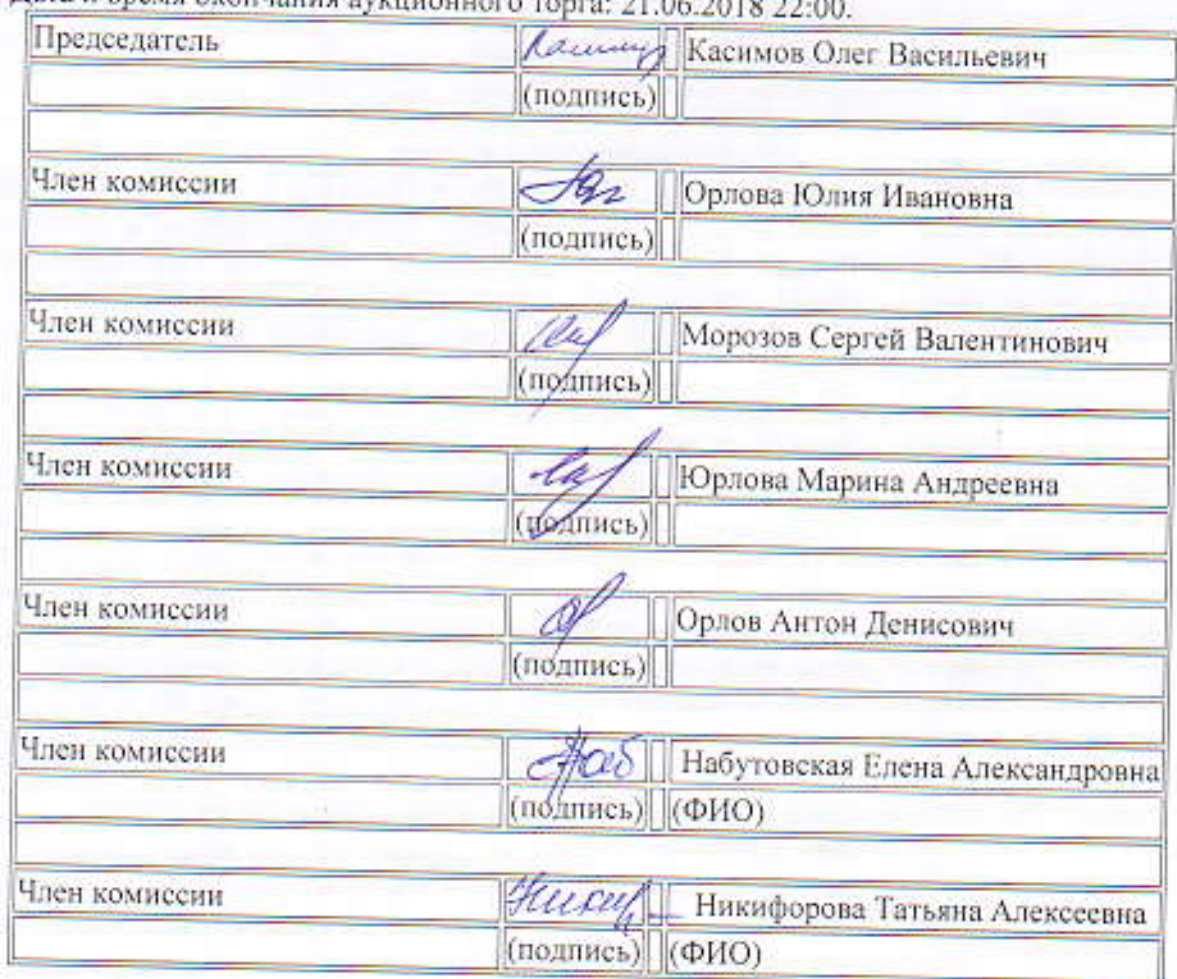 Дата и время окончания аукционного торга: 21.06.2018 22:00.
Председатель Касимов Олег Васильевич
(подпись)
Член комиссии Орлова Юлия Ивановна
(подпись)
Член комиссии Морозов Сергей Валентинович
(подпись)
Член комиссии Юрлова Марина Андреевна
(подпись)
Член комиссии Орлов Антон Денисович
(подпись)
Член комиссии Набутовская Елена Александровна
(подпись) (ФИО)
Член комиссии Никифорова Татьяна Алексеевна
(подпись) (ФИО)